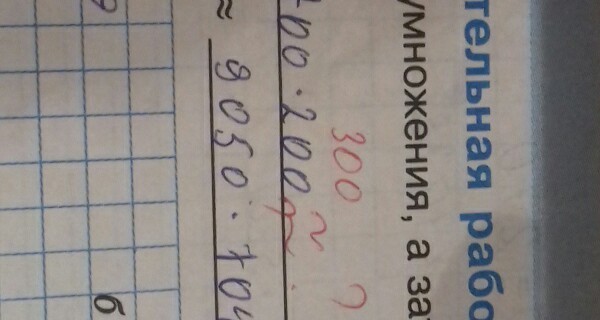 тельная рабо
умножения, а за
300 ?
00 · 200 ≈
≈ 9050 · 10
б